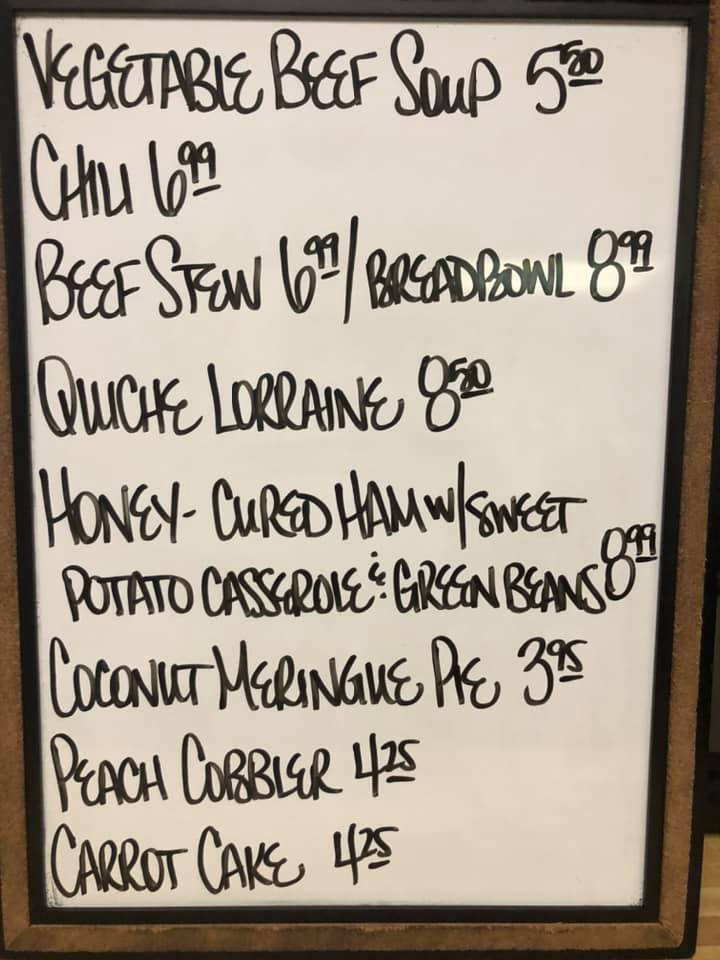 VEGETABLE BEEF SOUP 5.50
CHILI 6.99
BEEF STEW 6.99/BREADBOWL 8.99
QUICHE LORRAINE 8.50
HONEY-CURED HAM W/SWEET
POTATO CASSEROLE & GREEN BEANS 8.99
COCONUT MERINGUE PIE 3.95
PEACH COBBLER 4.25
CARROT CAKE 4.25